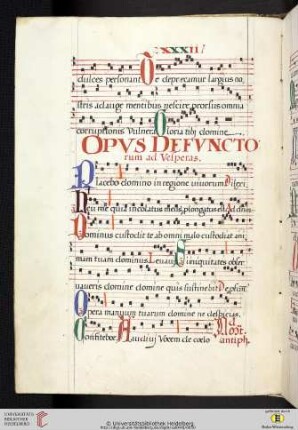 XXXII
dulces personant Te deprecamur largius no
stris adauge mentibus nescire prorsus omnia
corruptionis Vulnera Gloria tibi domine
OPVS DEFVNCTO
rum ad Vesperas.
Placebo domino in regione vivorum
Heu me quia incolatus meus prolongatus est
Dominus custodit te ab omni malo custodiat ani
mam tuam dominus Levavi Si iniquitates obser
vaveris domine domine quis sustinebit
Opera manuum tuarum domine ne despicias
Confitebor Audivi Vocem de coelo
antiph.
UNIVERSITÄTS-
BIBLIOTHEK
HEIDELBERG
© Universitätsbibliothek Heidelberg
gefördert durch
Baden-Württemberg